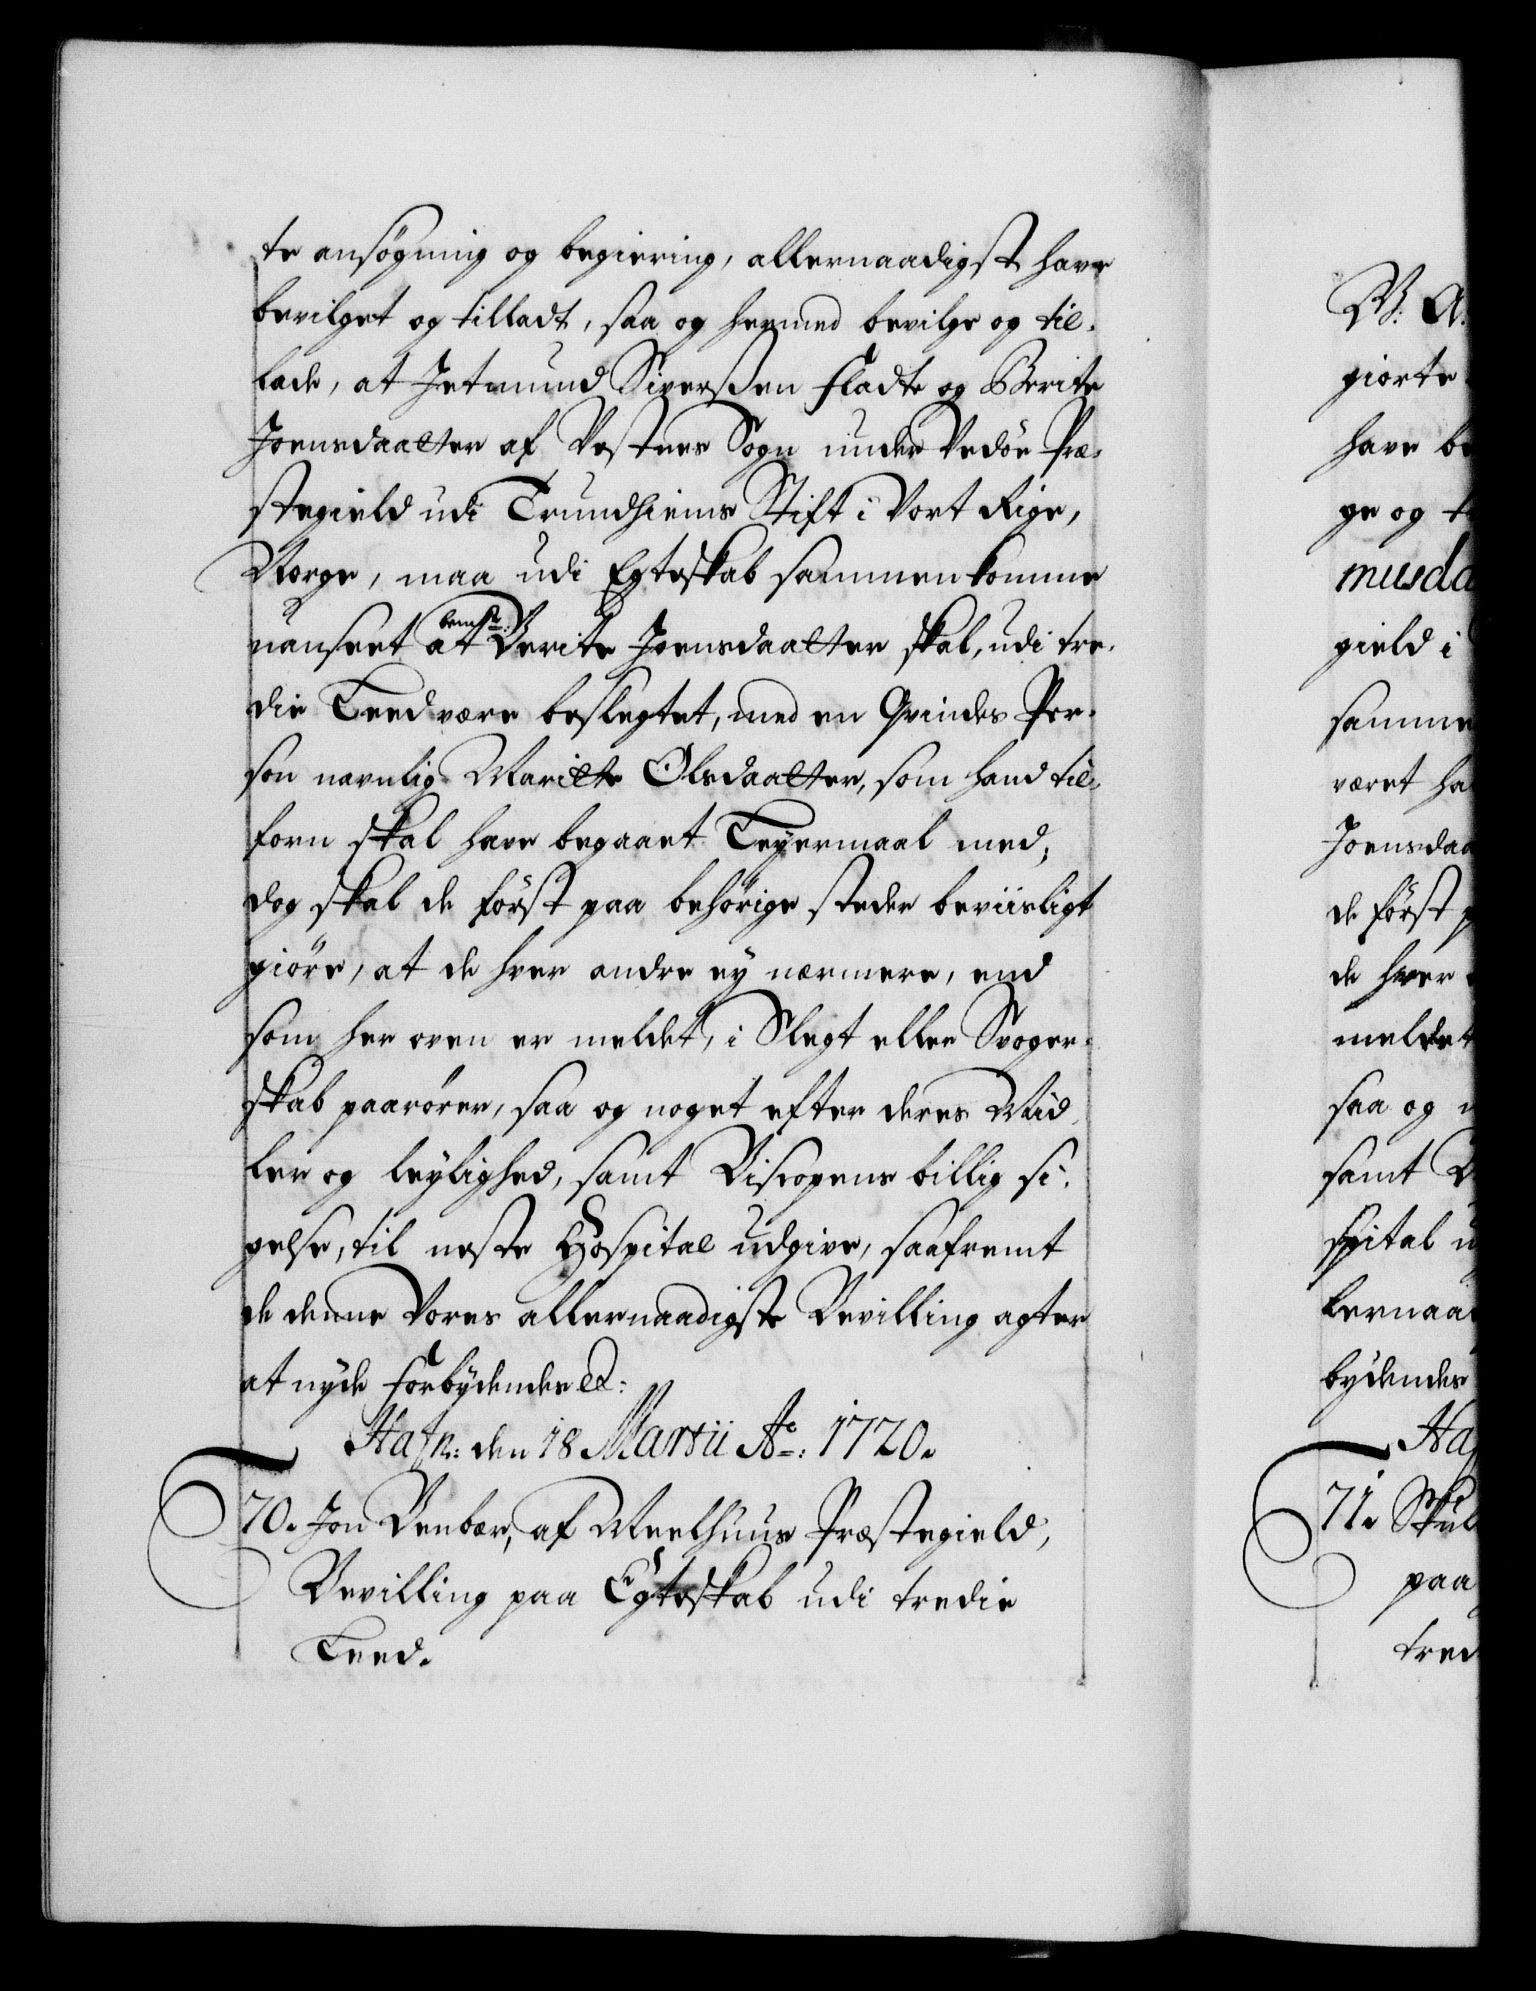 te ansøgning og begiering, allernaadigst have
bevilget og tilladt, saa og hermed bevilge og til-
lade, at Jetmund Siverßen Fladte og Berite
Joensdaatter af Vestnes Sogn under Vedøe Præ-
stegield udi Trundhiems Stift i Vort Rige,
Norge, maa udi Egteskab sammenkomme
uanseet at bemte: Berite Joensdaatter skal, udi tre-
die Leed være beslegtet, med en Qvindes Per-
son navnlig Maritte Olsdaatter, som hand til-
forn skal have begaaet Leyermaal med;
dog skal de først paa behørige steder beviisligt
giøre, at de hver andre ey nærmere, end
som her oven er meldet, i Slegt eller Svoger-
skab paarører, saa og noget efter deres Mid-
ler og leylighed, samt Biscopens billig si-
gelse, til neste Hospital udgive, saafremt
de denne Vores allernaadigste Bevilling agter
at nyde Forbydendes &:
Hafn: den 18 Martii Ao: 1720.
70. Jon Benbær, af Meelhuus Præstegield,
Bevilling paa Egteskab udi tredie
Leed.
V: A:
giorte
have be
ge og t
musda
gield i
samme
været ha
Joensdaa
de først p
de hver
meldet
saa og n
samt B
spital u
lernaad
bydendes
Haf
71. Skul
paa
tred